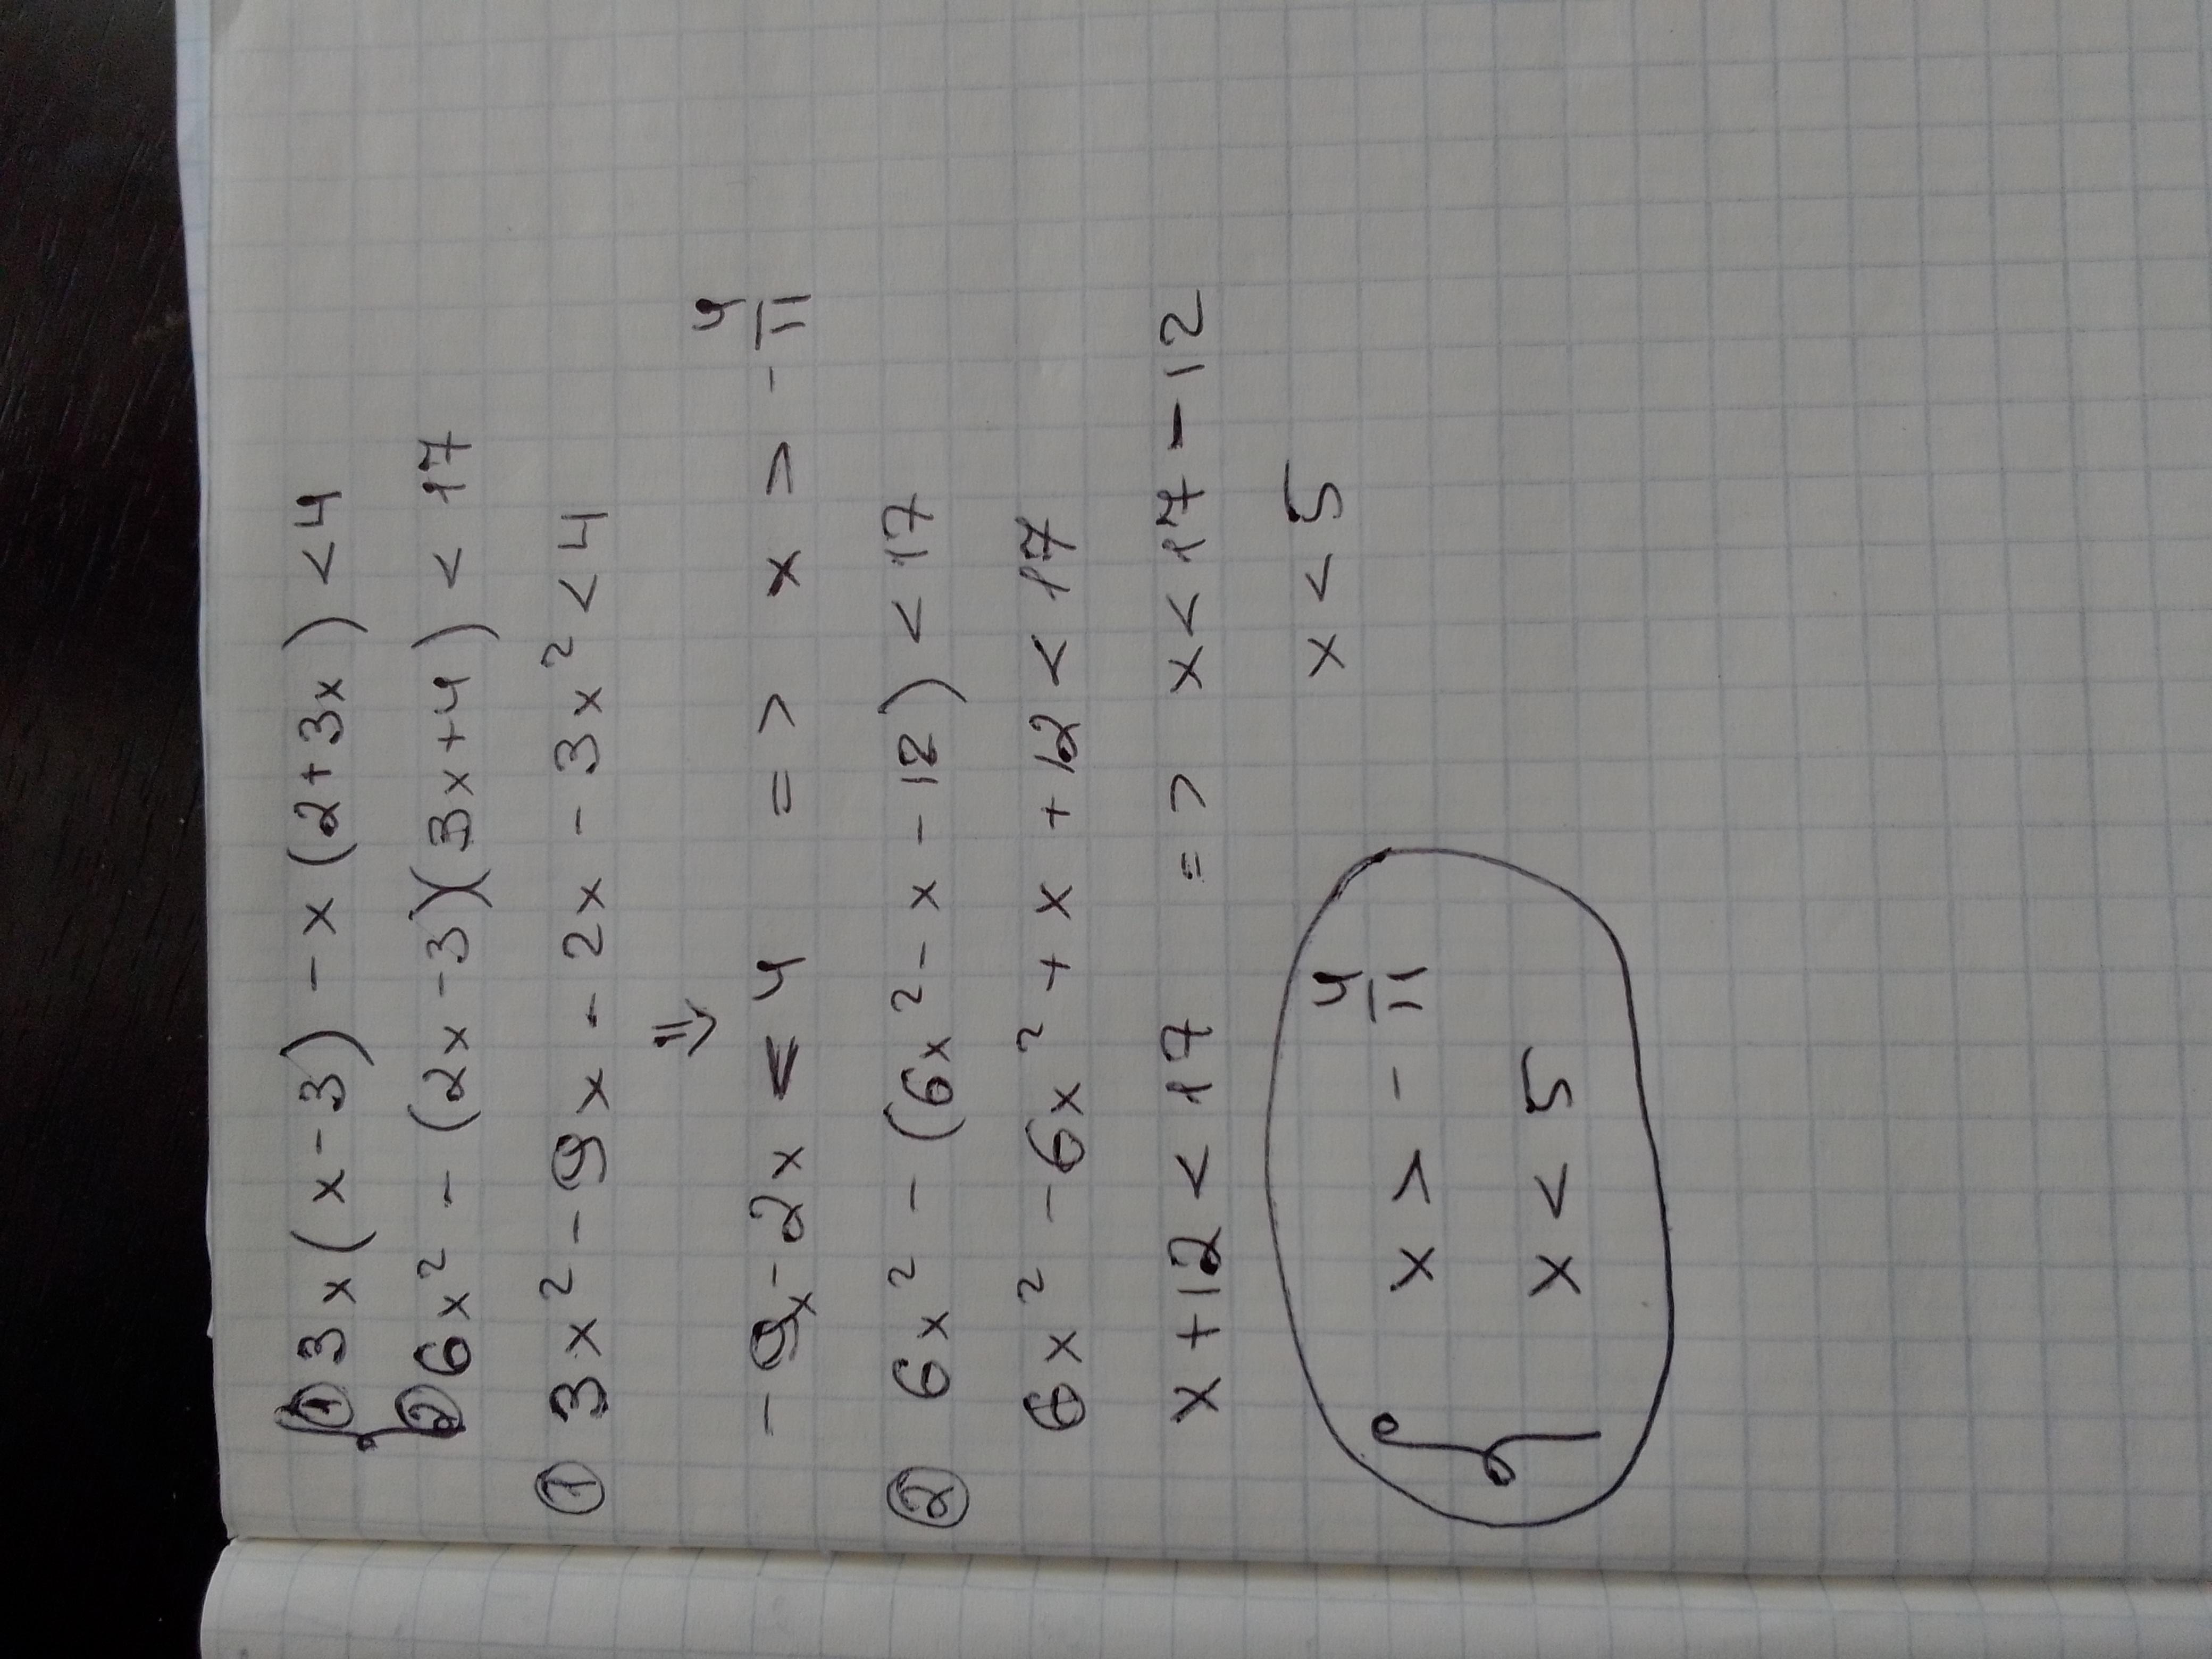 ① 3x(x-3) - x(2+3x) < 4
② 6x² - (2x-3)(3x+4) < 17
① 3x² - 9x - 2x - 3x² < 4
⇓
-9x - 2x < 4 => x > - 4/11
② 6x² - (6x² - x - 12) < 17
6x² - 6x² + x + 12 < 17
x + 12 < 17 => x < 17 - 12
x < 5
{ x > - 4/11
x < 5